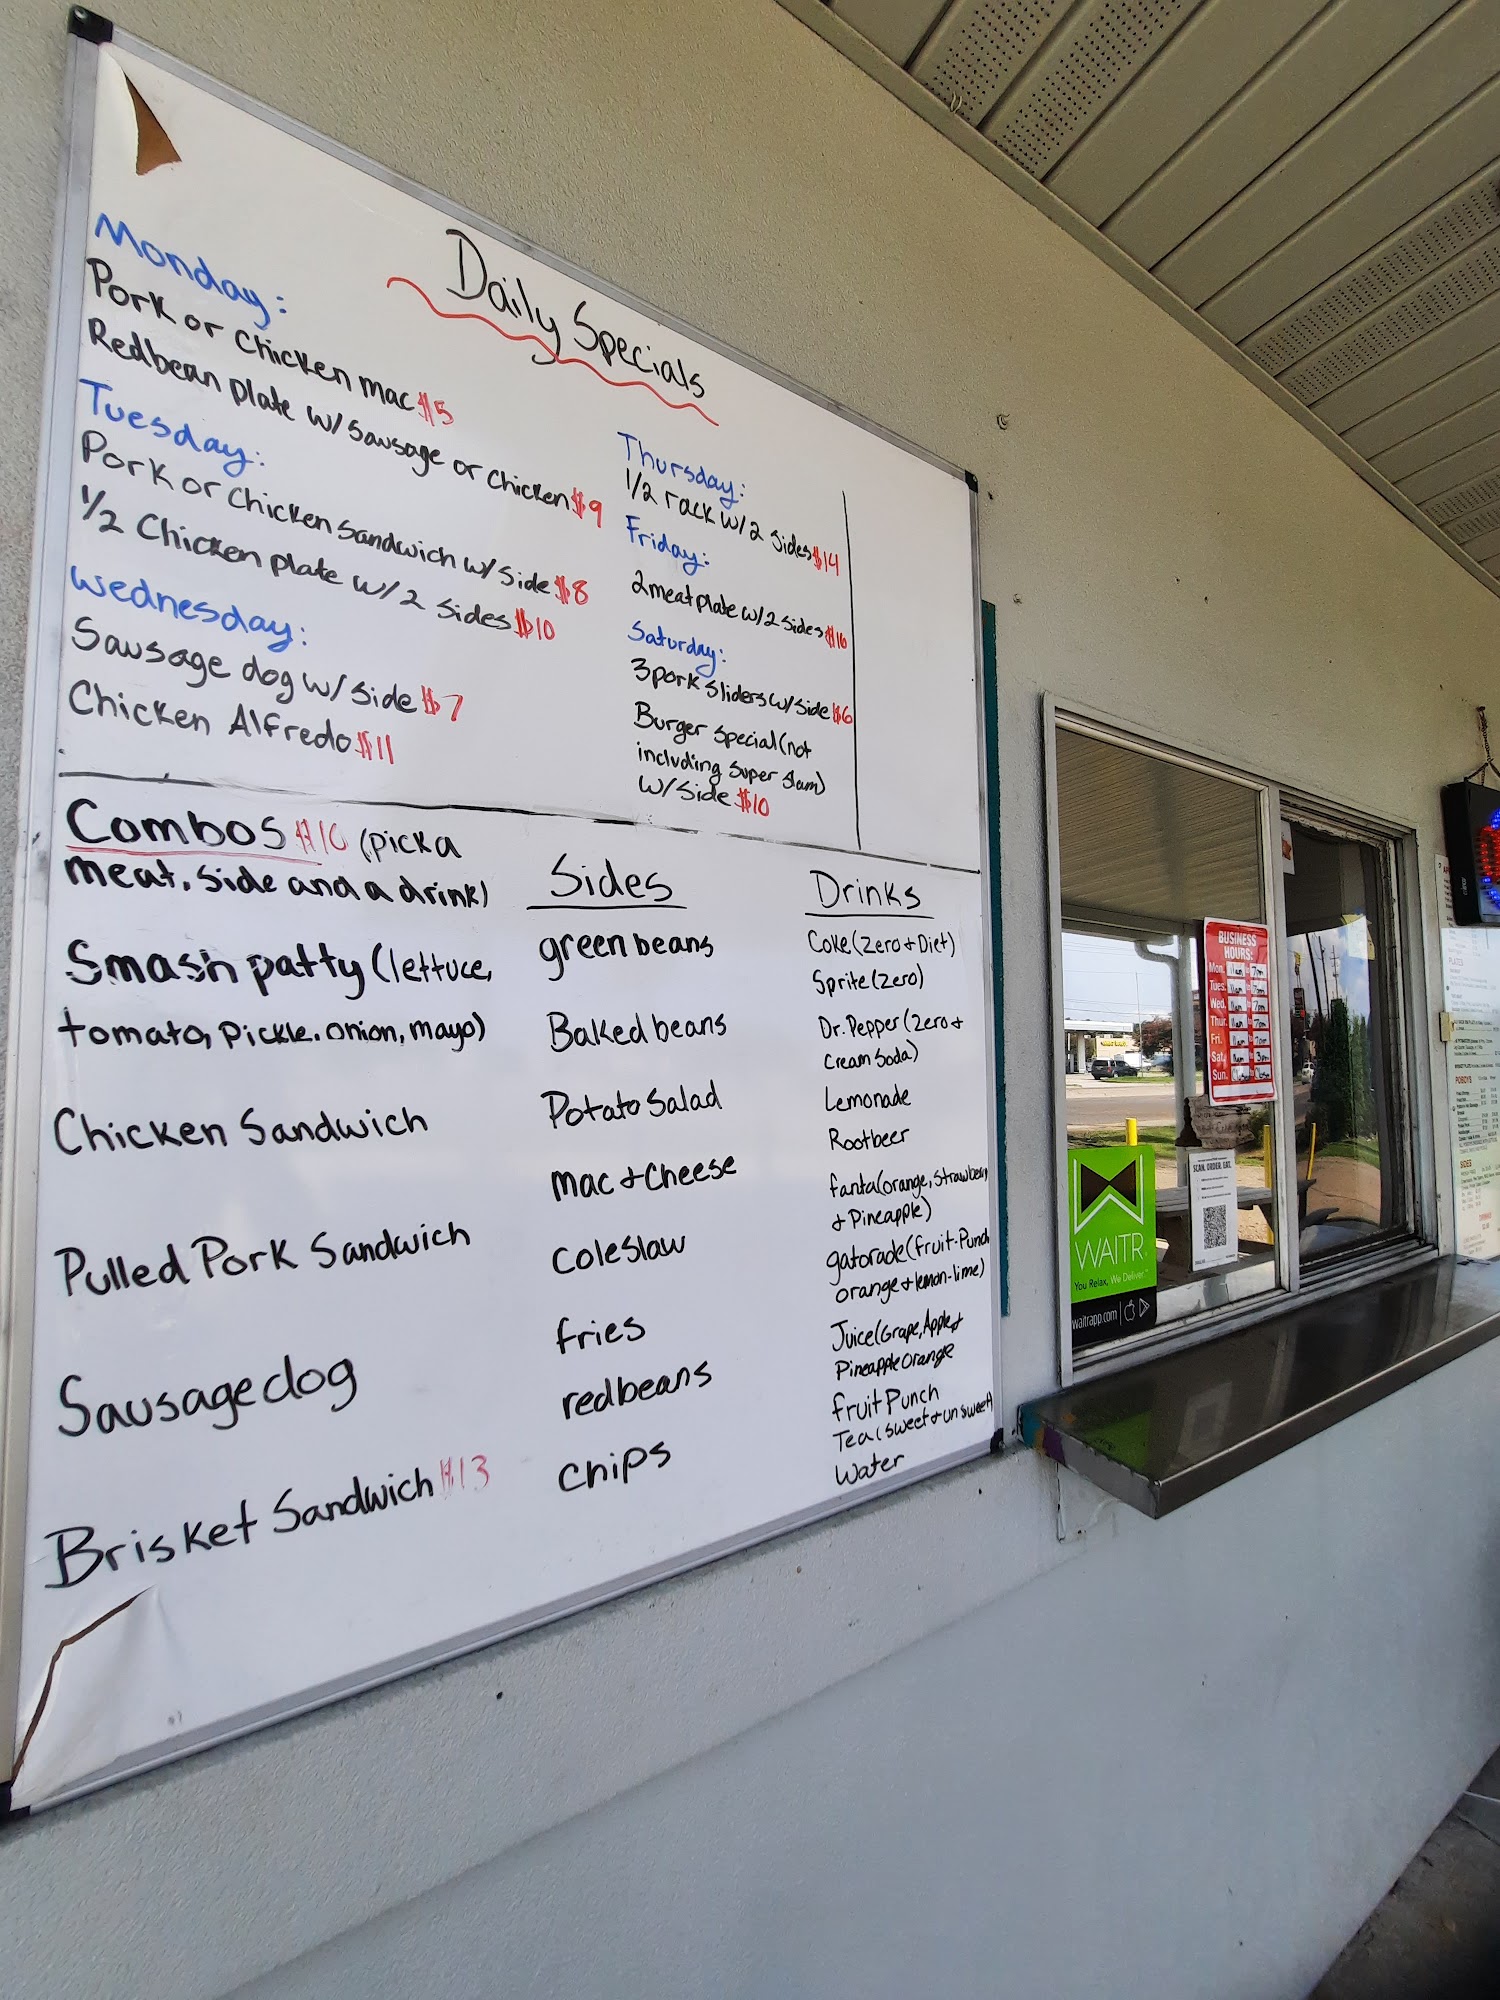 Daily Specials
Monday:
Pork or Chicken mac $5
Redbean plate w/ Sausage or Chicken $9
Tuesday:
Pork or Chicken Sandwich w/ Side $8
1/2 Chicken plate w/ 2 Sides $10
Wednesday:
Sausage dog w/ Side $7
Chicken Alfredo $11
Thursday:
1/2 rack w/ 2 Sides $14
Friday:
2 meat plate w/ 2 sides $16
Saturday:
3 pork Sliders w/ Side $6
Burger Special (not
including Super Slam)
w/ Side $10
Combos $10 (pick a
meat, Side and a drink)
Smash patty (lettuce,
tomato, pickle, onion, mayo)
Chicken Sandwich
Pulled Pork Sandwich
Sausage dog
Brisket Sandwich $13
Sides
green beans
Baked beans
Potato Salad
mac + Cheese
Coleslaw
fries
redbeans
Chips
Drinks
Coke (Zero + Diet)
Sprite (Zero)
Dr. Pepper (Zero +
Cream Soda)
Lemonade
Rootbeer
fanta (orange, Strawberry
+ Pineapple)
gatorade (fruit-Punch
orange + lemon-lime)
Juice (Grape, Apple +
Pineapple Orange
fruit Punch
Tea (sweet + unsweet)
Water
BUSINESS
HOURS:
Mon. 11am 7pm
Tues. 11am 7pm
Wed. 11am 7pm
Thur. 11am 7pm
Fri. 11am 7pm
Sat. 3pm
Sun.
WAITR
You Relax, We Deliver.™
waitrapp.com
SCAN. ORDER. EAT.
PLATES
POBOYS
SIDES